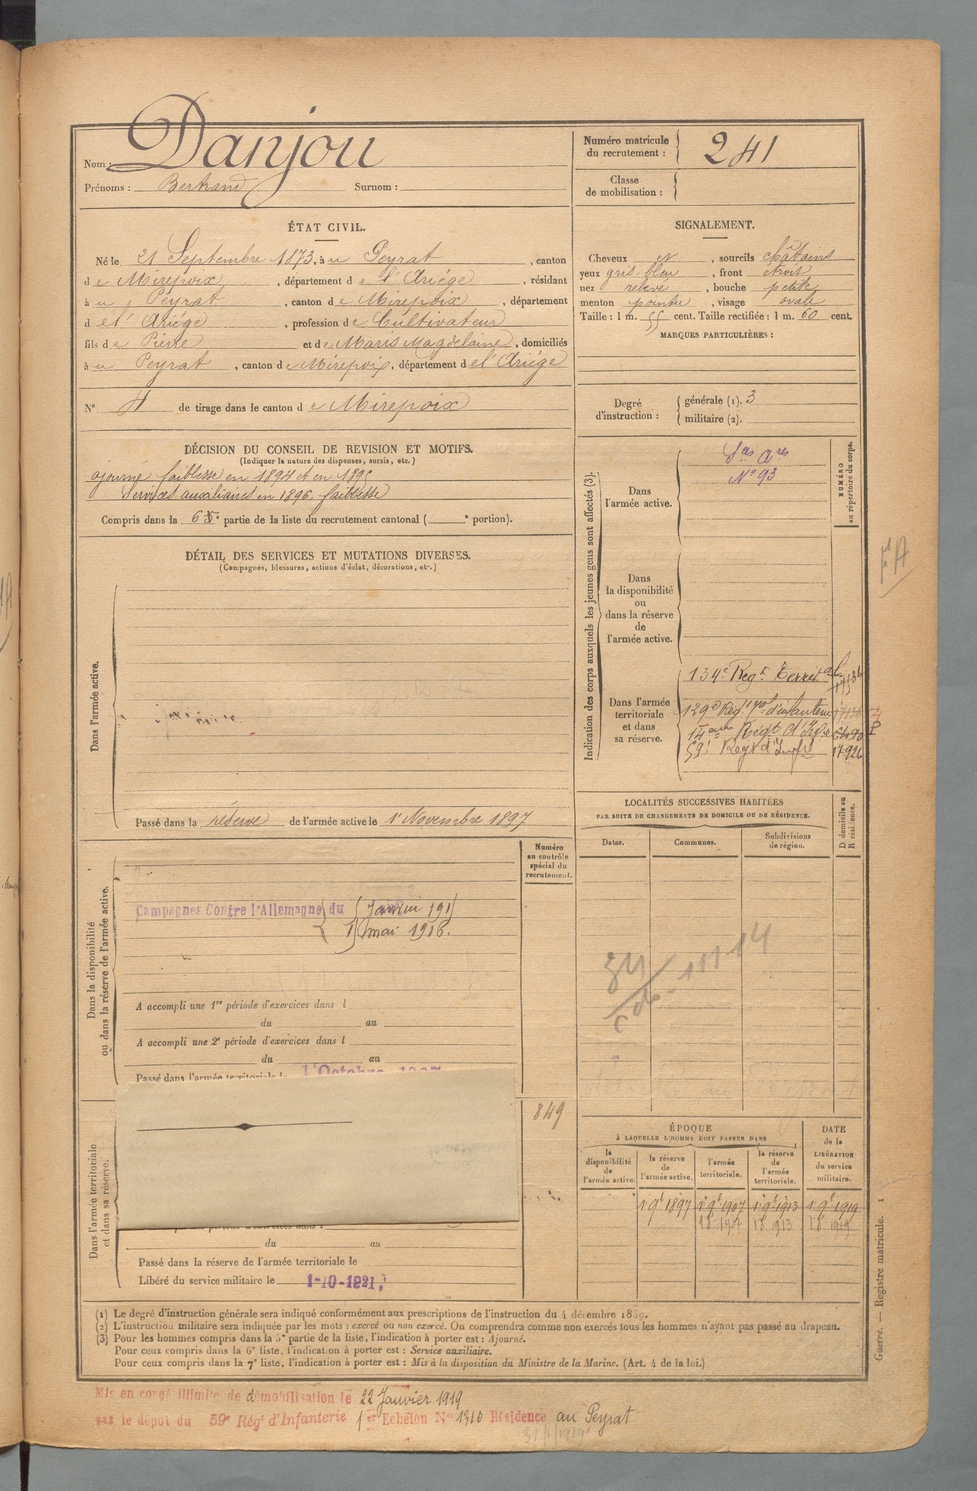 Nom : Danjou
Prénoms : Bertrand Surnom :
Numéro matricule
du recrutement : 241
Classe
de mobilisation :
ÉTAT CIVIL.
Né le 21 Septembre 1873, à u Peyrat, canton
d e Mirepoix, département d e l'Ariége, résidant
à u Peyrat, canton d e Mirepoix, département
d e l'Ariége, profession d e Cultivateur
fils d e Pierre et d e Marie Magdelaine, domiciliés
à u Peyrat, canton d e Mirepoix, département d e l'Ariége
N° 4 de tirage dans le canton d e Mirepoix
SIGNALEMENT.
Cheveux et, sourcils châtains
yeux gris-bleu, front étroit
nez relevé, bouche petite
menton pointu, visage ovale
Taille : 1 m. 55 cent. Taille rectifiée : 1 m. 60 cent.
MARQUES PARTICULIÈRES :
Degré
d'instruction :
générale (1). 3
militaire (2).
DÉCISION DU CONSEIL DE REVISION ET MOTIFS.
(Indiquer la nature des dispenses, sursis, etc.)
ajourné faiblesse en 1894 et en 1895
Services auxiliaires en 1896. faiblesse
Compris dans la 6e partie de la liste du recrutement cantonal ( e portion).
DÉTAIL DES SERVICES ET MUTATIONS DIVERSES.
(Campagnes, blessures, actions d'éclat, décorations, etc.)
Dans l'armée active.
Passé dans la réserve de l'armée active le 1er Novembre 1897
Indication des corps auxquels les jeunes gens sont affectés (3).
NUMÉRO
au répertoire du corps.
Dans
l'armée active.
Ses Ares
N° 93
Dans
la disponibilité
ou
dans la réserve
de
l'armée active.
Dans l'armée
territoriale
et dans
sa réserve.
134e Régt Territal
129e Régt d'infanterie
14ème Régt d'Infie
59e Regt d'Infie
LOCALITÉS SUCCESSIVES HABITÉES
PAR SUITE DE CHANGEMENTS DE DOMICILE OU DE RÉSIDENCE.
Dates.
Communes.
Subdivisions
de région.
D domicile ou
R résidence.
Dans la disponibilité
ou dans la réserve de l'armée active.
Numéro
au contrôle
spécial du
recrutement.
Campagnes Contre l'Allemagne du
Janvier 191
mai 1916.
A accompli une 1re période d'exercices dans l
du au
A accompli une 2e période d'exercices dans l
du au
Passé dans l'armée territoriale le 1 Octobre 1907
849
Dans l'armée territoriale
et dans sa réserve.
du au
Passé dans la réserve de l'armée territoriale le
Libéré du service militaire le 1-10-1921
ÉPOQUE
À LAQUELLE L'HOMME DOIT PASSER DANS
DATE
de la
LIBÉRATION
du service
militaire.
la
disponibilité
de
l'armée active.
la réserve
de
l'armée active.
l'armée
territoriale.
la réserve
de
l'armée
territoriale.
1 9e 1897 1 9e 1907 1 9e 1913 1 9e 1919
(1) Le degré d'instruction générale sera indiqué conformément aux prescriptions de l'instruction du 4 décembre 1889.
(2) L'instruction militaire sera indiquée par les mots : exercé ou non exercé. On comprendra comme non exercés tous les hommes n'ayant pas passé au drapeau.
(3) Pour les hommes compris dans la 5e partie de la liste, l'indication à porter est : Ajourné.
Pour ceux compris dans la 6e liste, l'indication à porter est : Service auxiliaire.
Pour ceux compris dans la 7e liste, l'indication à porter est : Mis à la disposition du Ministre de la Marine. (Art. 4 de la loi.)
Guerre. — Registre matricule. 1
Mis en congé illimité de démobilisation le 22 Janvier 1919
par le dépôt du 59e Régt d'Infanterie 1er Echelon N° 1310 Résidence au Peyrat